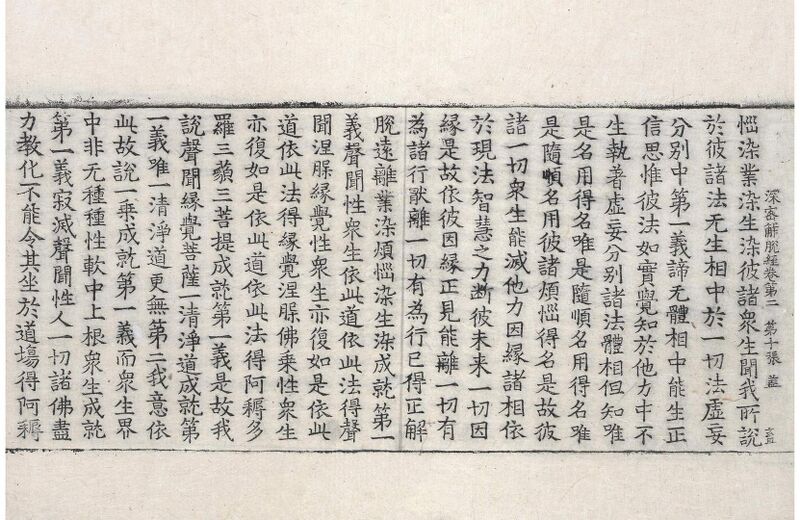 深密解脫經卷第二　第十張　蓋
惱染業染生染彼諸衆生聞我所說
於彼諸法无生相中於一切法虛妄
分別中第一義諦无體相中能生正
信思惟彼法如實覺知於他力中不
生執著虛妄分別諸法體相但知唯
是名用得名唯是隨順名用得名唯
是隨順名用彼諸煩惱得名是故彼
諸一切衆生能滅他力因緣諸相依
於現法智慧之力斷彼未来一切因
緣是故依彼因緣正見能離一切有
為諸行猒離一切有為行已得正解
脫遠離業染煩惱染生染成就第一
義聲聞性衆生依此道依此法得聲
聞涅槃緣覺性衆生亦復如是依此
道依此法得緣覺涅槃佛乘性衆生
亦復如是依此道依此法得阿耨多
羅三藐三菩提成就第一義是故我
說聲聞緣覺菩薩一清淨道成就第
一義唯一清淨道更無第二我意依
此故說一乘成就第一義而衆生界
中非无種種性軟中上根衆生成就
第一義寂滅聲聞性人一切諸佛盡
力教化不能令其坐於道場得阿耨